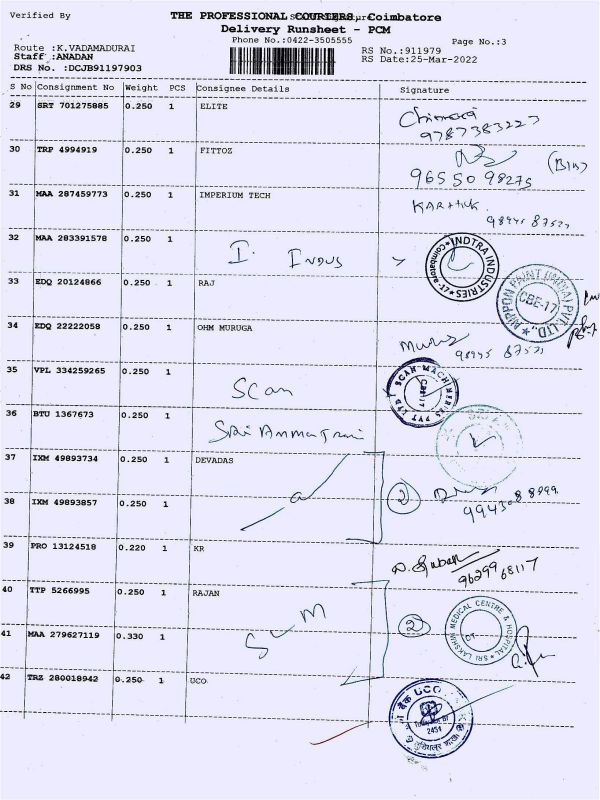 Verified By
THE PROFESSIONAL COURIERS, Coimbatore
Delivery Runsheet - PCM
Phone No.:0422-3505555
Page No.:3
Route :K.VADAMADURAI
Staff :ANADAN
DRS No. :DCJB91197903
RS No.:911979
RS Date:25-Mar-2022
S No Consignment No Weight PCS Consignee Details Signature
29 SRT 701275885 0.250 1 ELITE
9787383227
30 TRP 4994919 0.250 1 FITTOZ
96550 98275
31 MAA 287459773 0.250 1 IMPERIUM TECH
KARTHIK
32 MAA 283391578 0.250 1
I. INDUS
INDTRA INDUSTRIES
Coimbatore-17
33 EDQ 20124866 0.250 1 RAJ
NIPPON PAINT (INDIA) PVT. LTD.
CBE-17
34 EDQ 22222058 0.250 1 OHM MURUGA
35 VPL 334259265 0.250 1
Scan
SCAN MACHINERIES PVT LTD
36 BTU 1367673 0.250 1
37 IXM 49893734 0.250 1 DEVADAS
2
38 IXM 49893857 0.250 1
39 PRO 13124518 0.220 1 KR
9629968117
40 TTP 5266995 0.250 1 RAJAN
2
SRI LAKSHMI MEDICAL CENTRE & HOSPITAL
41 MAA 279627119 0.330 1
42 TRZ 280018942 0.250 1 UCO
UCO
2451